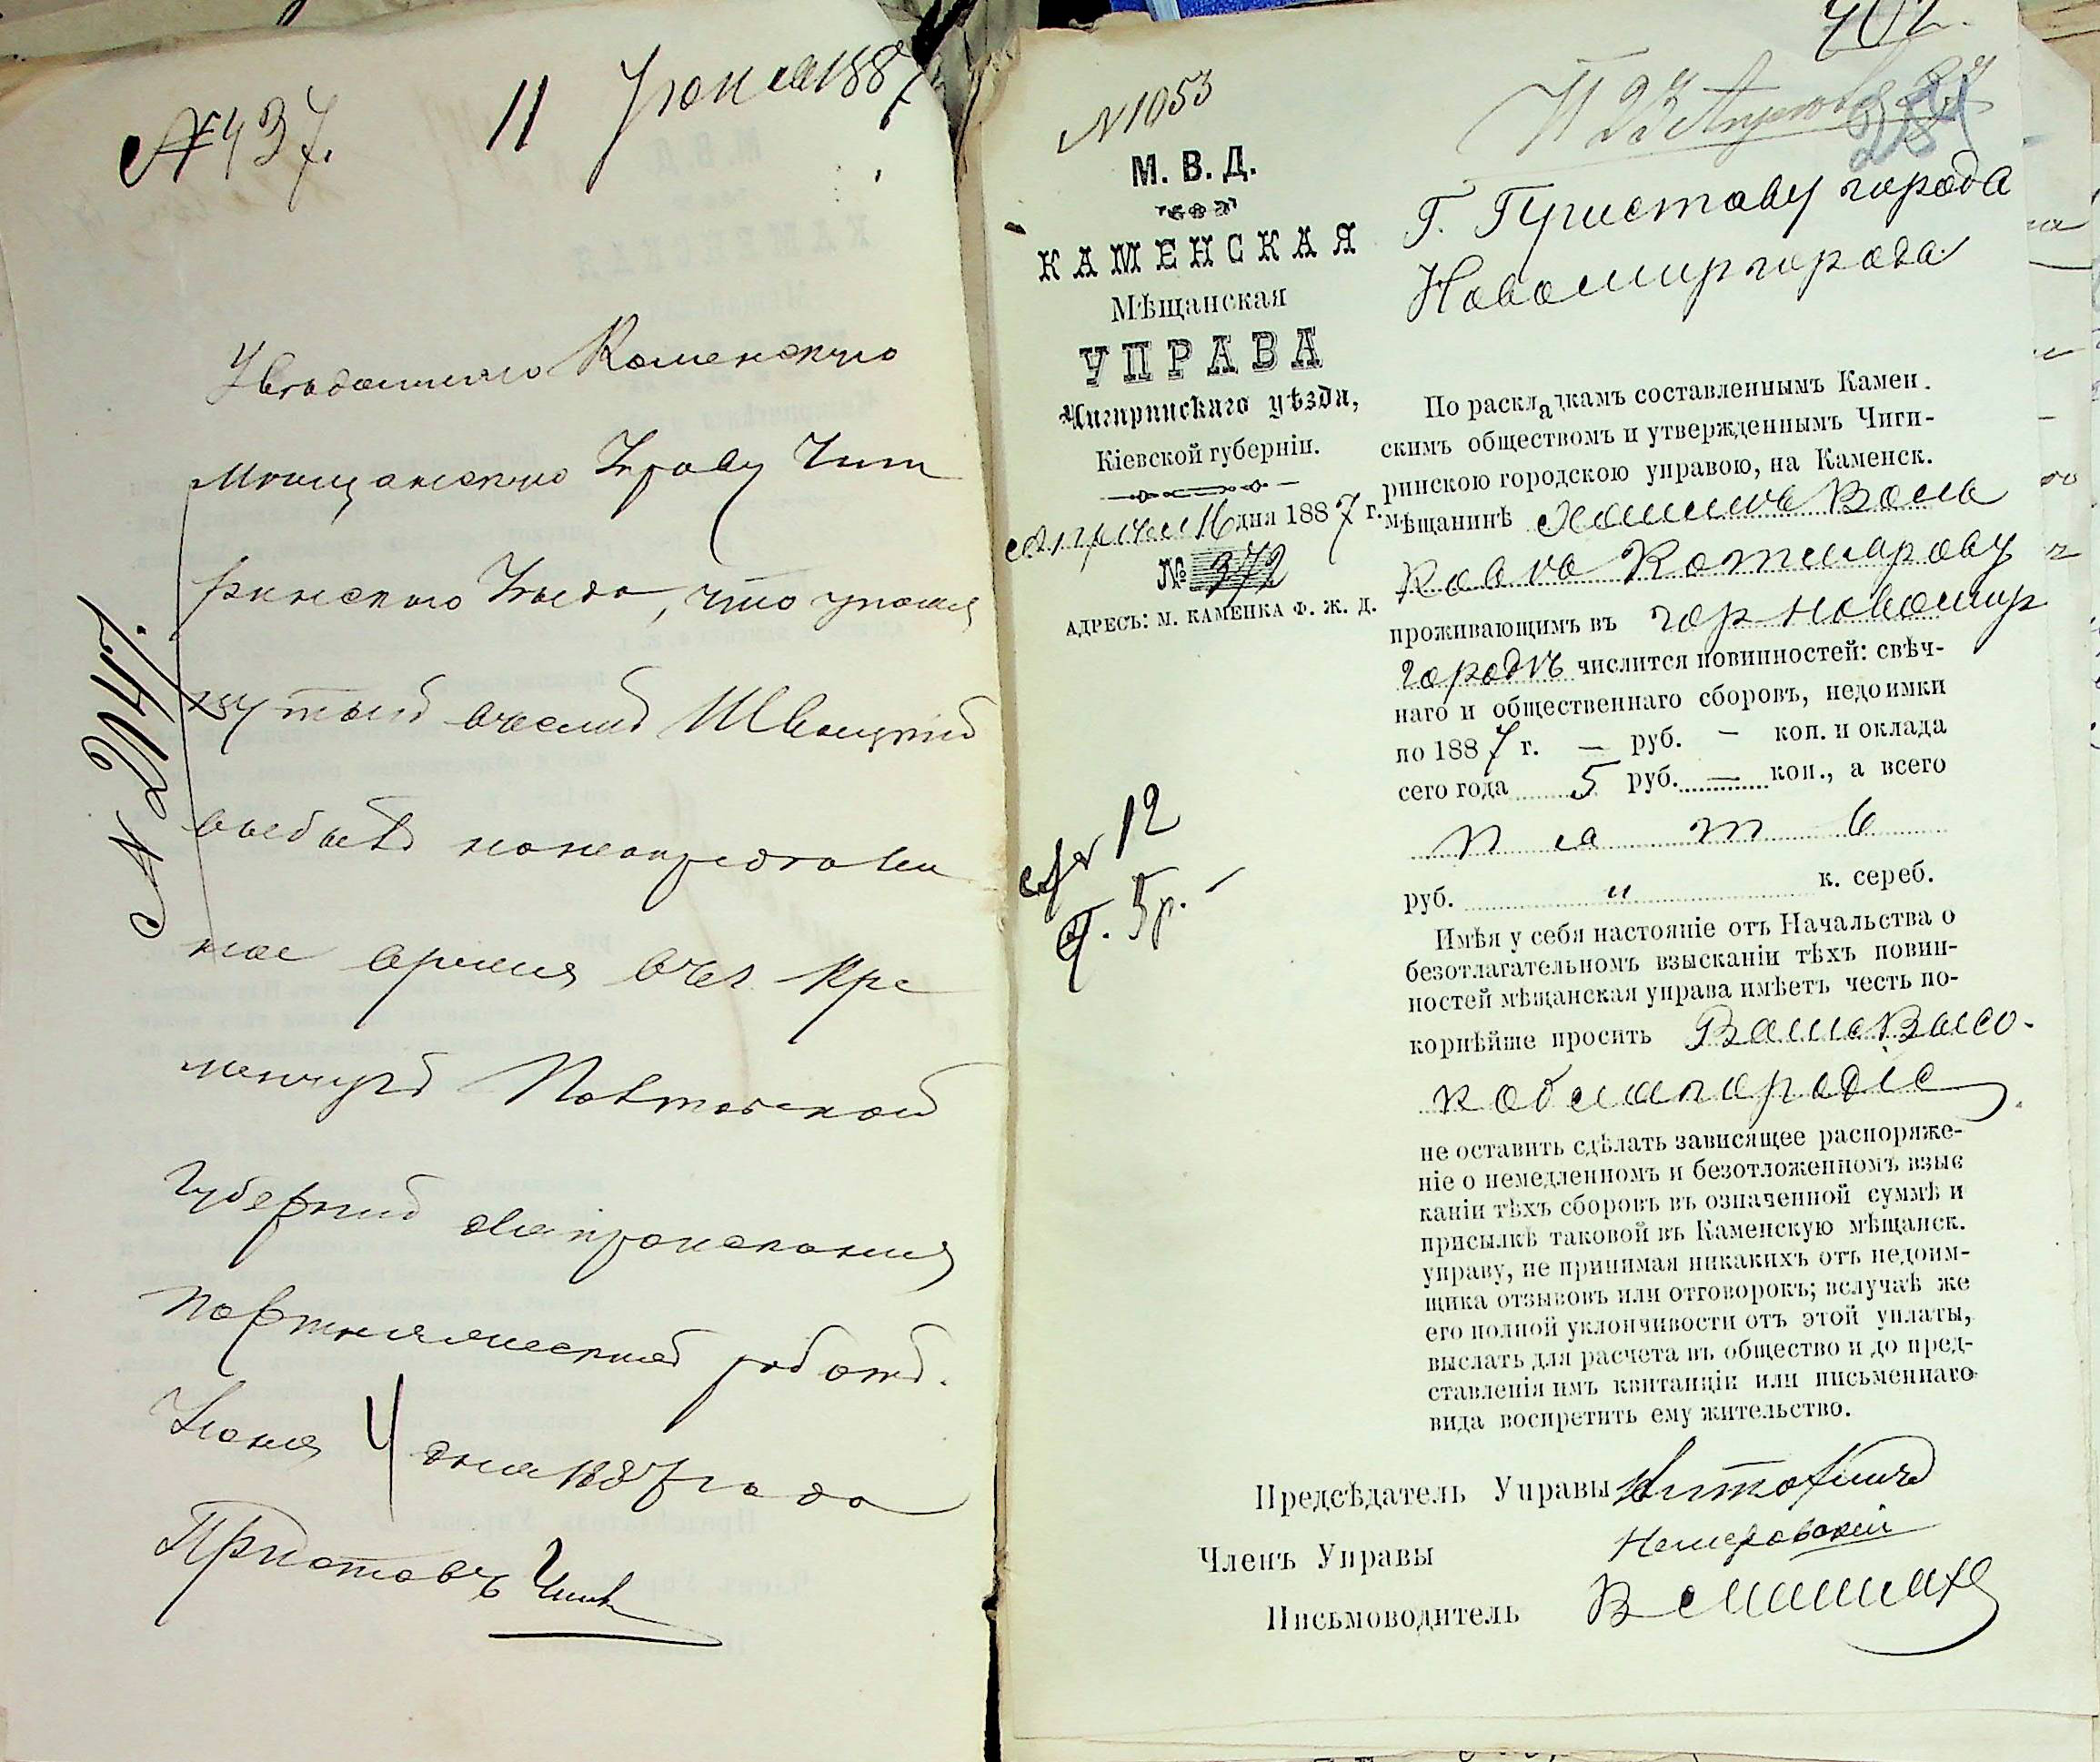 № 437. 11 Іюня 1887
Увѣдомляю Каменскую
Мѣщанскую Управу Чиги
ринскаго Уѣзда, что упомя
нутый
выбылъ на неопредѣлен
ное время въ г. Кре
менчугъ Полтавской
Губерніи
портняжеской работѣ.
Іюня 4 дня 1887 года
Приставъ
№ 2147.
№ 1053
М. В. Д.
КАМЕНСКАЯ
Мѣщанская
УПРАВА
Чигиринскаго уѣзда,
Кіевской губерніи.
Апрѣля 16 дня 1887 г.
№ 372
АДРЕСЪ: М. КАМЕНКА Ф. Ж. Д.
12
5 р.
402.
23 Апрѣля 87
284
Г. Приставу города
Новомиргорода
По раскладкамъ составленнымъ Камен.
скимъ обществомъ и утвержденнымъ Чиги-
ринскою городскою управою, на Каменск.
мѣщанинѣ
проживающимъ въ гор Новомир
городѣ числится повинностей: свѣч-
наго и общественнаго сборовъ, недоимки
по 1887 г. — руб. — коп. и оклада
сего года 5 руб. — коп., а всего
пять
руб. " к. сереб.
Имѣя у себя настояніе отъ Начальства о
безотлагательномъ взысканіи тѣхъ повин-
ностей мѣщанская управа имѣетъ честь по-
корнѣйше просить Ваше Высо-
коблагородіе
не оставить сдѣлать зависящее распоряже-
ніе о немедленномъ и безотложенномъ взыс
каніи тѣхъ сборовъ въ означенной суммѣ и
присылкѣ таковой въ Каменскую мѣщанск.
управу, не принимая никакихъ отъ недоим-
щика отзывовъ или отговорокъ; вслучаѣ же
его полной уклончивости отъ этой уплаты,
выслать для расчета въ общество и до пред-
ставленія имъ квитанціи или письменнаго
вида воспретить ему жительство.
Предсѣдатель Управы
Членъ Управы
Письмоводитель